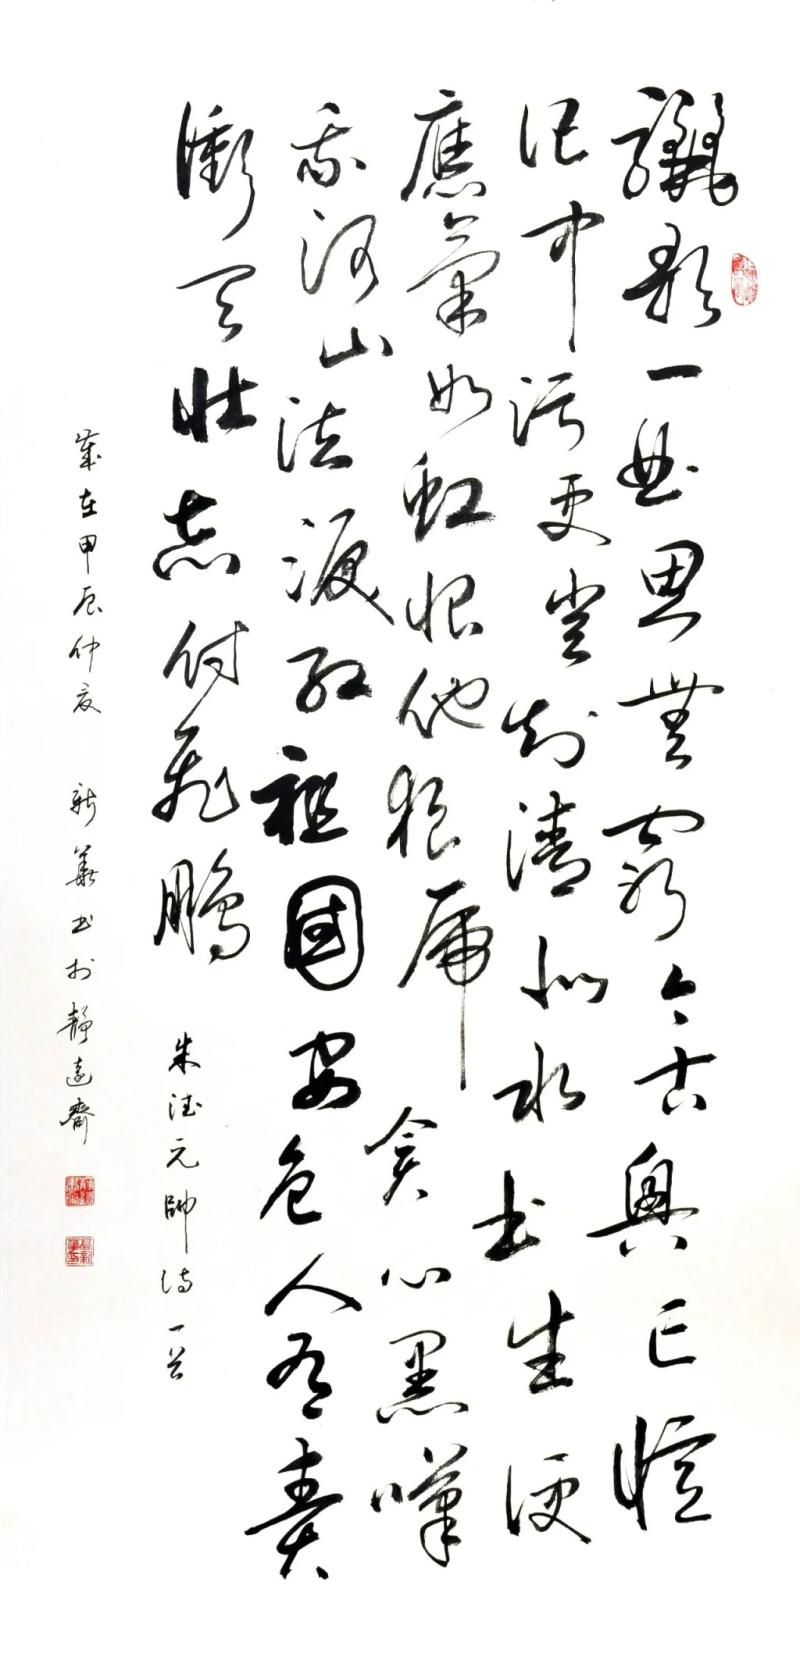 驪歌一曲思無窮今古興亡憶
記中污吏豈知清似水書生便
應氣如虹恨他狼虎貪心黑嘆
我河山泣淚紅祖國安危人有責
衝天壯志付飛鵬
朱德元帥詩一首
歲在甲辰仲夏 新華書於靜遠齋